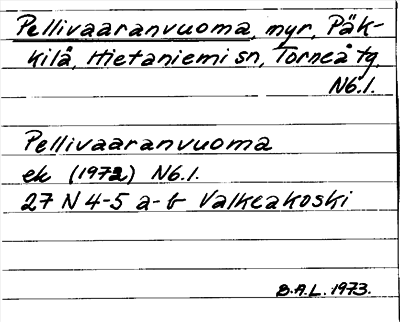 Pellivaaranvuoma, myr, Päk-
kilå, Hietaniemi sn, Torneå tg,
N6.1.
Pellivaaranvuoma
ek (1972) N6.1.
27 N 4-5 a-b Valkeakoski
B.A.L. 1973.